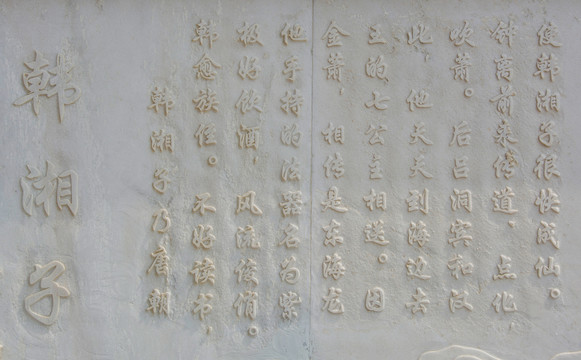 韩湘子
韩湘子乃唐朝
韩愈族侄。不好读书，
极好饮酒，风流俊俏。
他手持的法器名为紫
金萧，相传是东海龙
王的七公主相送。因
此，他天天到海边去
吹萧。后吕洞宾和汉
钟离前来传道、点化，
使韩湘子很快成仙。